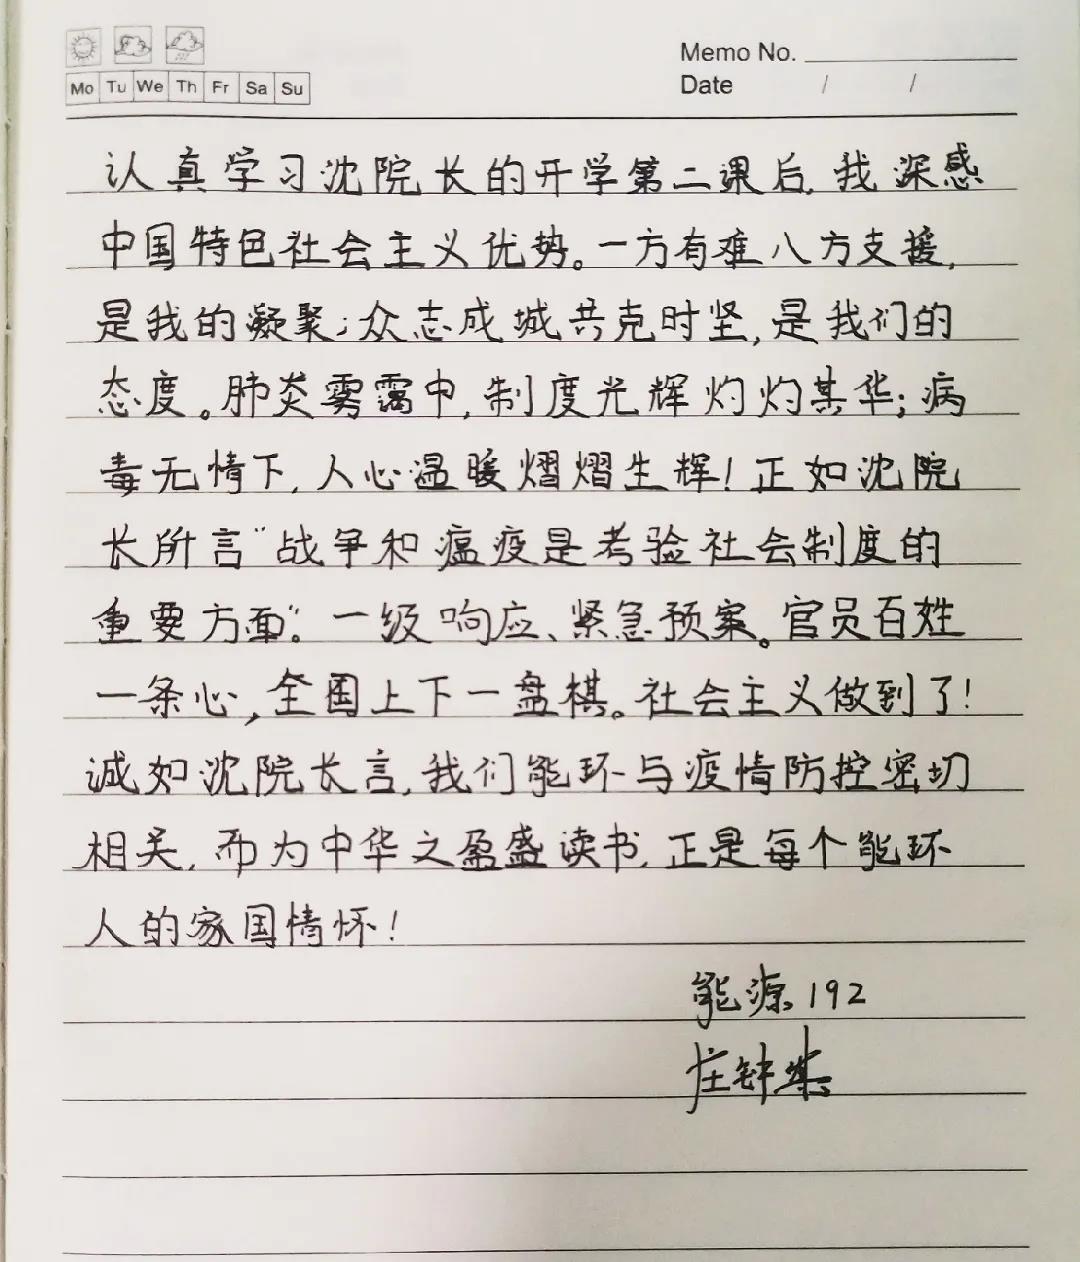 Memo No.
Mo Tu We Th Fr Sa Su
Date / /
认真学习沈院长的开学第二课后,我深感
中国特色社会主义优势。一方有难八方支援,
是我的凝聚;众志成城共克时坚,是我们的
态度。肺炎雾霭中,制度光辉灼灼其华;病
毒无情下,人心温暖熠熠生辉!正如沈院
长所言"战争和瘟疫是考验社会制度的
重要方面"。一级响应、紧急预案。官员百姓
一条心,全国上下一盘棋。社会主义做到了!
诚如沈院长言,我们能环与疫情防控密切
相关,而为中华之盈盛读书,正是每个能环
人的家国情怀!
能源192
庄钟